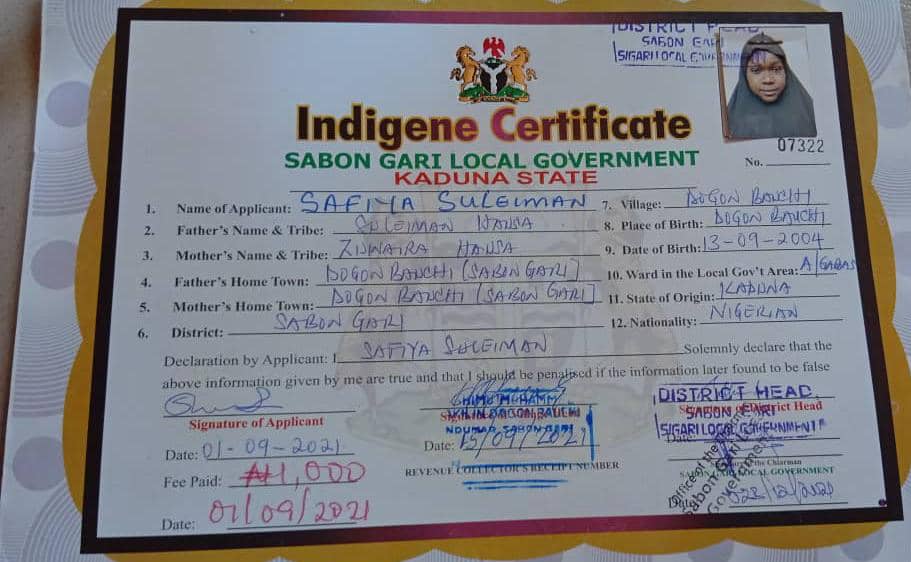 DISTRICT HEAD
SABON GARI
SIGARI LOCAL GOVERNMENT
Indigene Certificate
No. 07322
SABON GARI LOCAL GOVERNMENT
KADUNA STATE
1. Name of Applicant: SAFIYA SULEIMAN 7. Village: DOGON BAUCHI
2. Father's Name & Tribe: SULEIMAN HAUSA 8. Place of Birth: DOGON BAUCHI
3. Mother's Name & Tribe: HAUSA 9. Date of Birth: 13-09-2004
4. Father's Home Town: DOGON BAUCHI (SABON GARI) 10. Ward in the Local Gov't Area: A/GABAS
5. Mother's Home Town: DOGON BAUCHI (SABON GARI) 11. State of Origin: KADUNA
6. District: SABON GARI 12. Nationality: NIGERIAN
Declaration by Applicant: I SAFIYA SULEIMAN Solemnly declare that the
above information given by me are true and that I should be penalised if the information later found to be false
DISTRICT HEAD
SABON GARI
SIGARI LOCAL GOVERNMENT
Signature of Applicant
Signature of District Head
NDUMAR SABON GARI
Date: 01-09-2021
Date: 15/09/2021
Date:
Fee Paid: ₦1,000
REVENUE COLLECTOR'S RECEIPT NUMBER
the Chiarman
SABON GARI LOCAL GOVERNMENT
Office of the
Sabon Gari
Government
Date: 01/09/2021
Date: